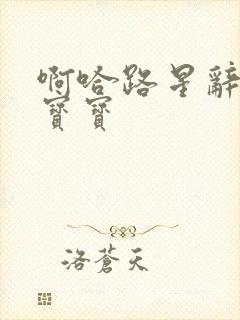 啊哈路星辭
寶寶
洛蒼天